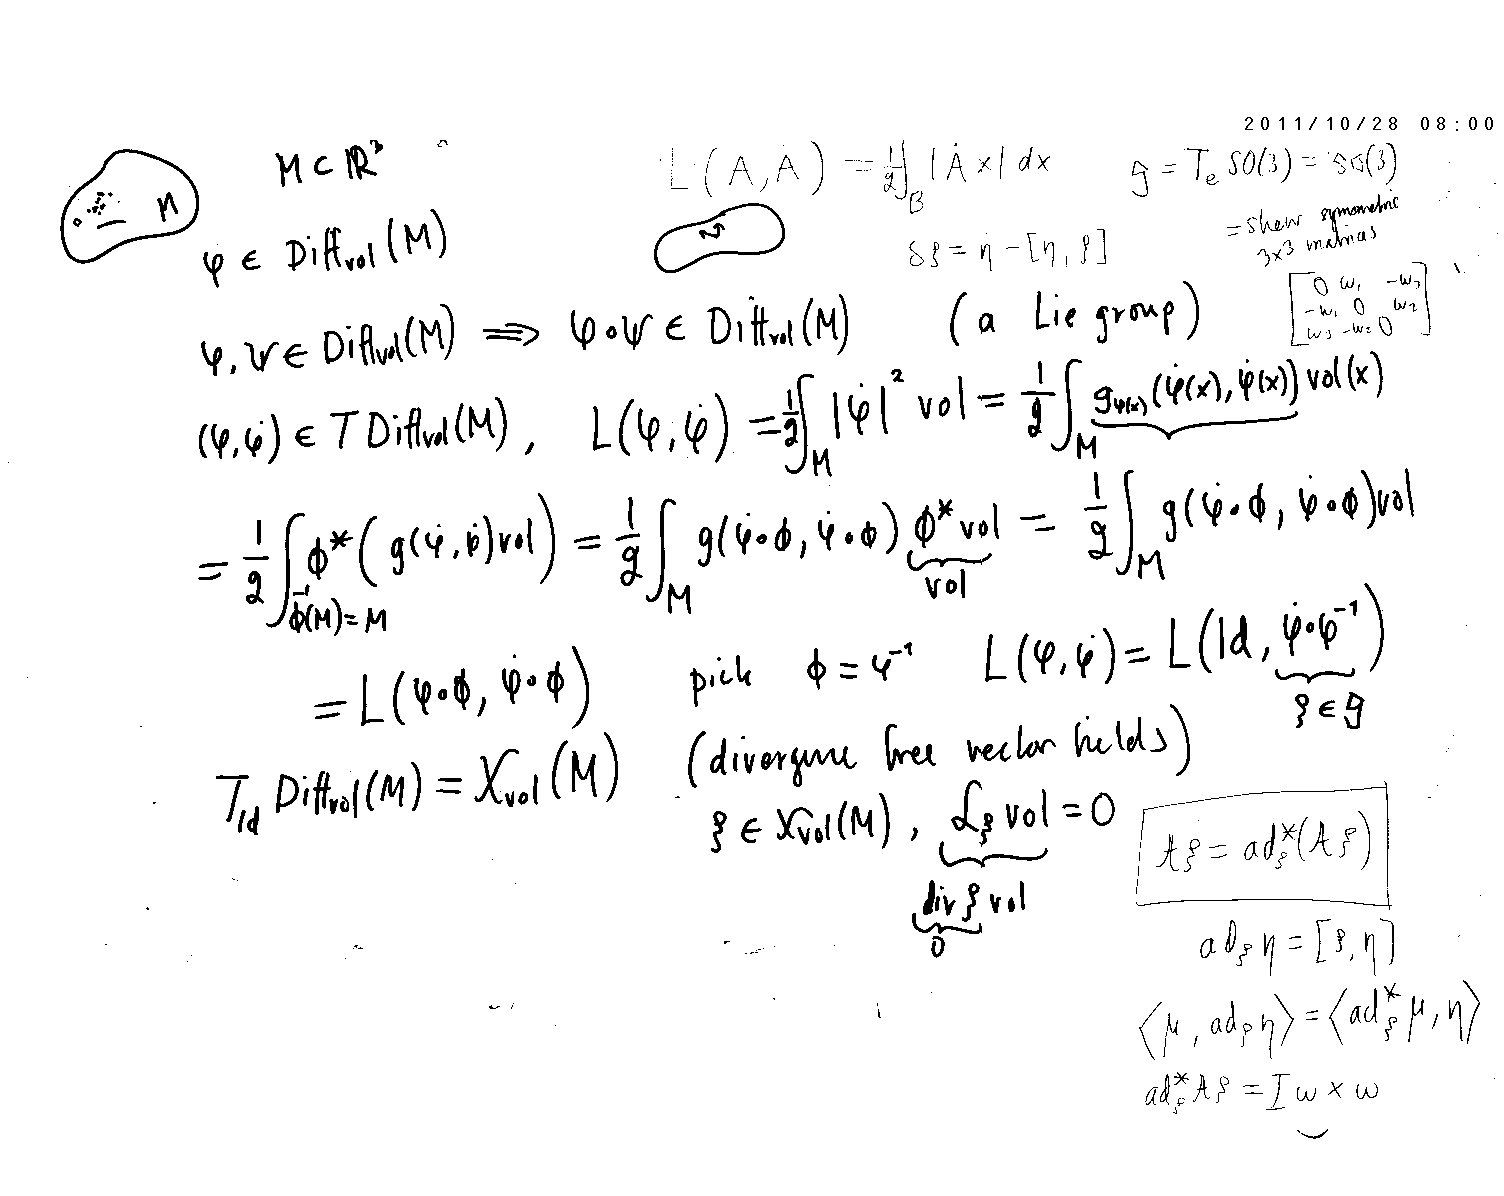 2011/10/28 08:00
M ⊂ ℝ³
L(A, Ȧ) = ½ ∫_B |Ȧx| dx
𝔤 = T_e SO(3) = so(3)
= skew symmetric
3x3 matrices
[0 ω₁ -ω₃
-ω₁ 0 ω₂
ω₃ -ω₂ 0]
M
φ ∈ Diff_vol(M)
δξ = η̇ - [η, ξ]
φ, ψ ∈ Diff_vol(M) ⟹ φ∘ψ ∈ Diff_vol(M) (a Lie group)
(φ, φ̇) ∈ T Diff_vol(M), L(φ, φ̇) = ½ ∫_M |φ̇|² vol = ½ ∫_M g_φ(x)(φ̇(x), φ̇(x)) vol(x)
= ½ ∫_{ϕ⁻¹(M)=M} ϕ*(g(φ̇, φ̇) vol) = ½ ∫_M g(φ̇∘ϕ, φ̇∘ϕ) ϕ* vol = ½ ∫_M g(φ̇∘ϕ, φ̇∘ϕ) vol
vol
= L(φ∘ϕ, φ̇∘ϕ) pick ϕ = φ⁻¹ L(φ, φ̇) = L(Id, φ̇∘φ⁻¹)
ξ ∈ 𝔤
T_Id Diff_vol(M) = X_vol(M) (divergence free vector fields)
ξ ∈ X_vol(M), ℒ_ξ vol = 0
div ξ vol
0
Aξ̇ = ad*_ξ(Aξ)
ad_ξ η = [ξ, η]
⟨μ, ad_ξ η⟩ = ⟨ad*_ξ μ, η⟩
ad*_ξ Aξ = Iω × ω